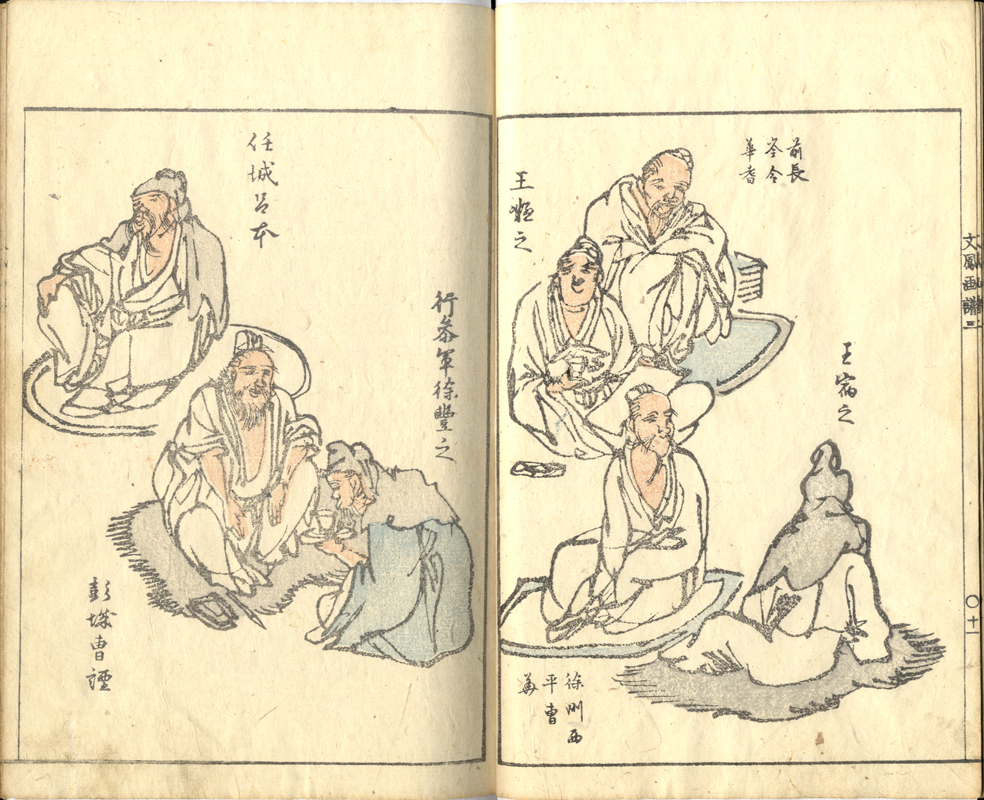 文鳳画譜三
〇十一
前長
岑令
華耆
王宿之
王 之
徐州西
平曹
華
行叅軍徐豐之
任城呂本
彭城曹諲